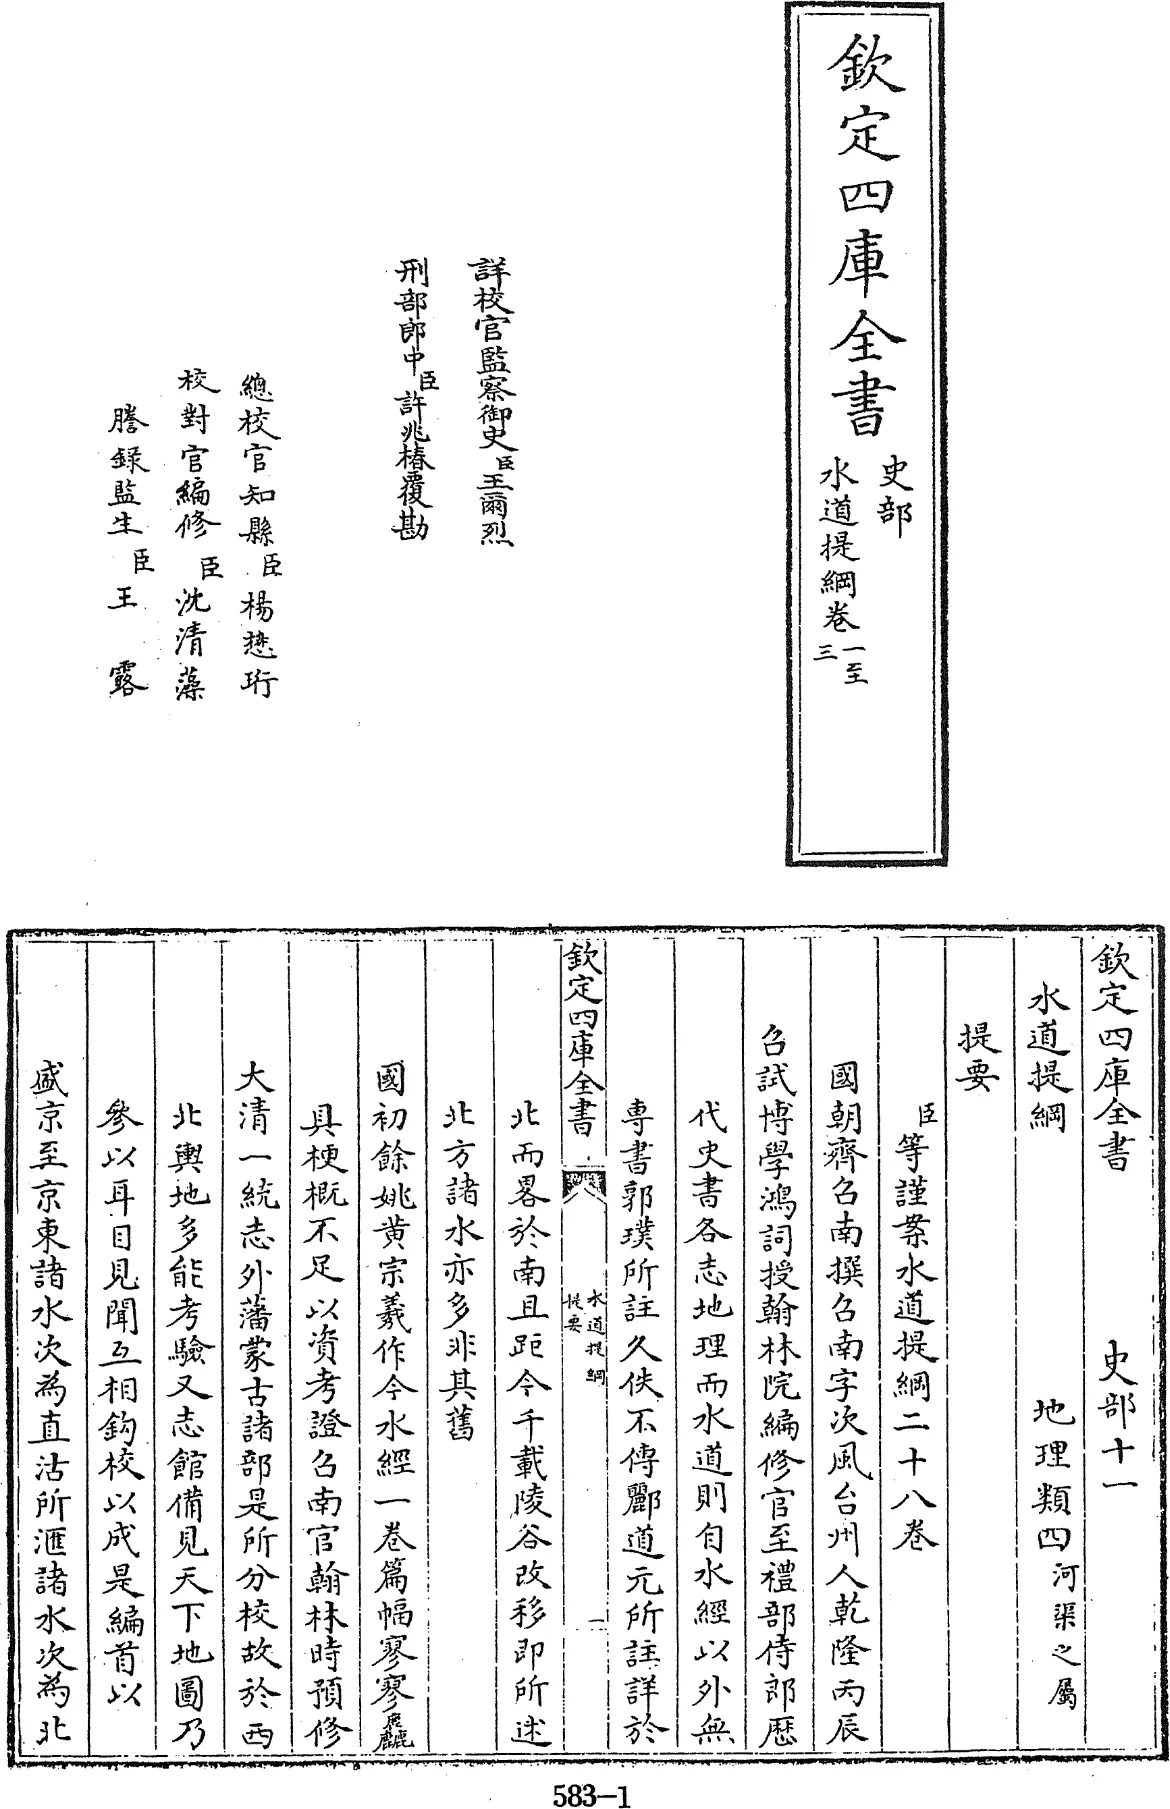 欽定四庫全書
史部
水道提綱卷一至三
詳校官監察御史臣王爾烈
刑部郎中臣許兆椿覆勘
總校官知縣臣楊懋珩
校對官編修臣沈清藻
謄錄監生臣王露
欽定四庫全書 史部十一
水道提綱 地理類四河渠之屬
提要
臣等謹案水道提綱二十八卷
國朝齊召南撰召南字次風台州人乾隆丙辰
召試博學鴻詞授翰林院編修官至禮部侍郎歷
代史書各志地理而水道則自水經以外無
專書郭璞所註久佚不傳酈道元所註詳於
欽定四庫全書 水道提綱提要 一
北而畧於南且距今千載陵谷改移即所述
北方諸水亦多非其舊
國初餘姚黄宗羲作今水經一卷篇幅寥寥麤
具梗概不足以資考證召南官翰林時預修
大清一統志外藩蒙古諸部是所分校故於西
北輿地多能考驗又志館備見天下地圖乃
參以耳目見聞互相鈎校以成是編首以
盛京至京東諸水次為直沽所滙諸水次為北
583-1